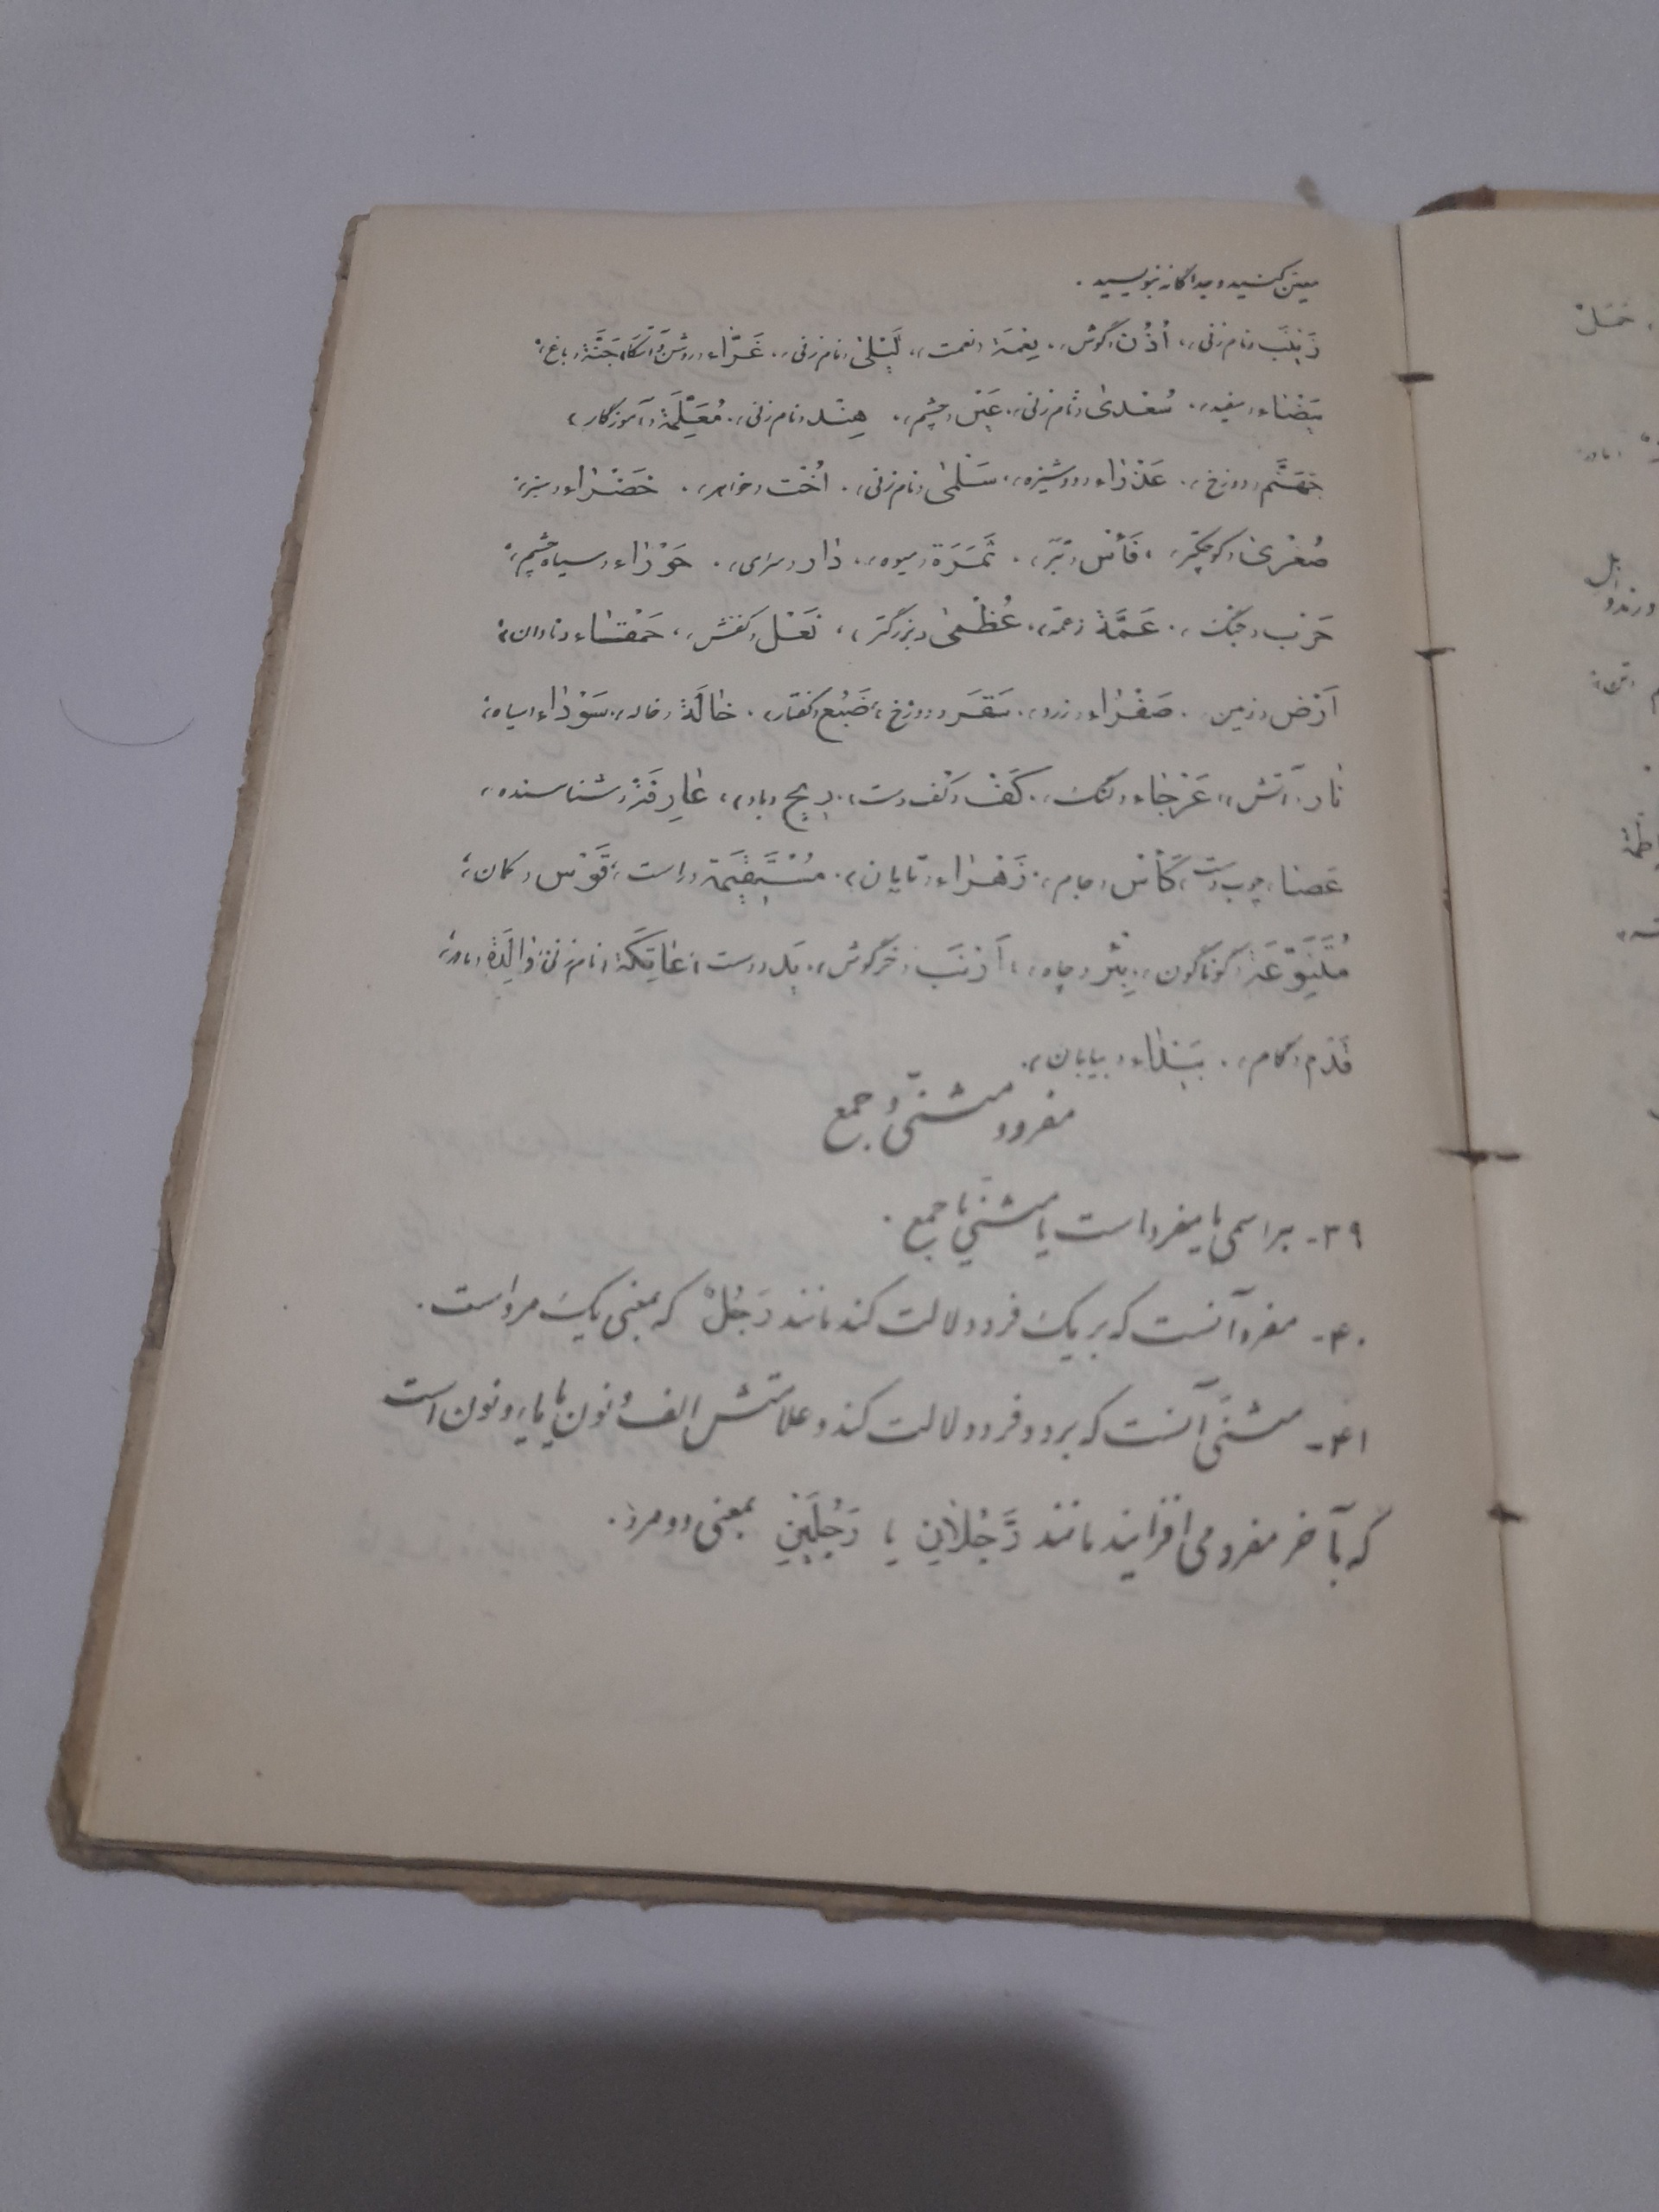 معین کنید و جداگانه بنویسید .
زَیْنَب «نام زنی»، اُذُن «گوش»، نِعْمَة «نعمت»، لَیْلیٰ «نام زنی»، غَرّاء «روشن و آشکار» جَنَّة «باغ»
بَیْضاء «سفید»، سُعْدیٰ «نام زنی»، عَیْن «چشم»، هِنْد «نام زنی»، مُعَلِّمَة «آموزگار»
جَهَنَّم «دوزخ»، عَذْراء «دوشیزه»، سَلْمیٰ «نام زنی»، اُخْت «خواهر»، خَضْراء «سبز»
صُغْریٰ «کوچکتر»، فَأْس «تبر»، ثَمَرَة «میوه»، دار «سرای»، حَوْراء «سیاه چشم»
حَرْب «جنگ»، عَمَّة «عمه»، عُظْمیٰ «بزرگتر»، نَعْل «کفش»، حَمْقاء «نادان»
اَرْض «زمین»، صَفْراء «زرد»، سَقَر «دوزخ»، ضَبُع «کفتار»، خالَة «خاله»، سَوْداء «سیاه»
نار «آتش»، عَرْجاء «لنگ»، کَفّ «کف دست»، ریح «باد»، عارِفَة «شناسنده»
عَصا «چوب دست»، کَأْس «جام»، زَهْراء «تابان»، مُسْتَقیمَة «راست»، قَوْس «کمان»
مُتَنَوِّعَة «گوناگون»، بِئْر «چاه»، اَرْنَب «خرگوش»، یَد «دست»، عاتِکَة «نام زنی»، والِدَة «مادر»
قَدَم «گام»، بَیْداء «بیابان»،
مفرد و مثنّی و جمع
۳۹- هر اسمی یا مفرد است یا مثنّی یا جمع .
۴۰- مفرد آنست که بر یک فرد دلالت کند مانند رَجُلٌ که بمعنی یک مرد است .
۴۱- مثنّی آنست که بر دو فرد دلالت کند و علامتش الف و نون یا یاء و نون است
که بآخر مفرد می افزایند مانند رَجُلانِ یا رَجُلَیْنِ بمعنی دو مرد .